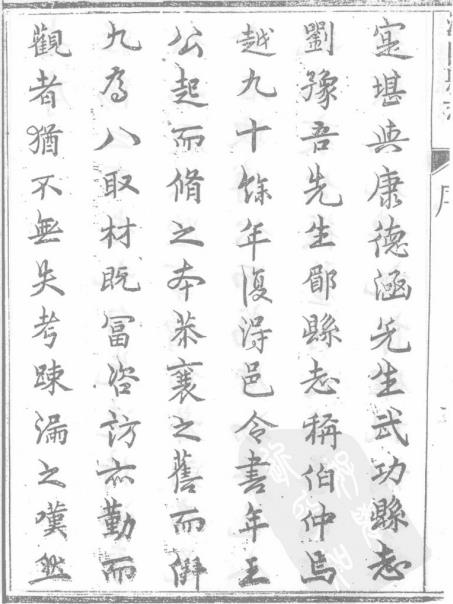 寔堪與康德涵先生武功縣志
劉豫吾先生郿縣志稱伯仲焉
越九十餘年復得邑令書年王
公起而脩之本恭襄之舊而併
九為八取材既冨咨訪亦勤而
觀者猶不無失考踈漏之嘆然
序